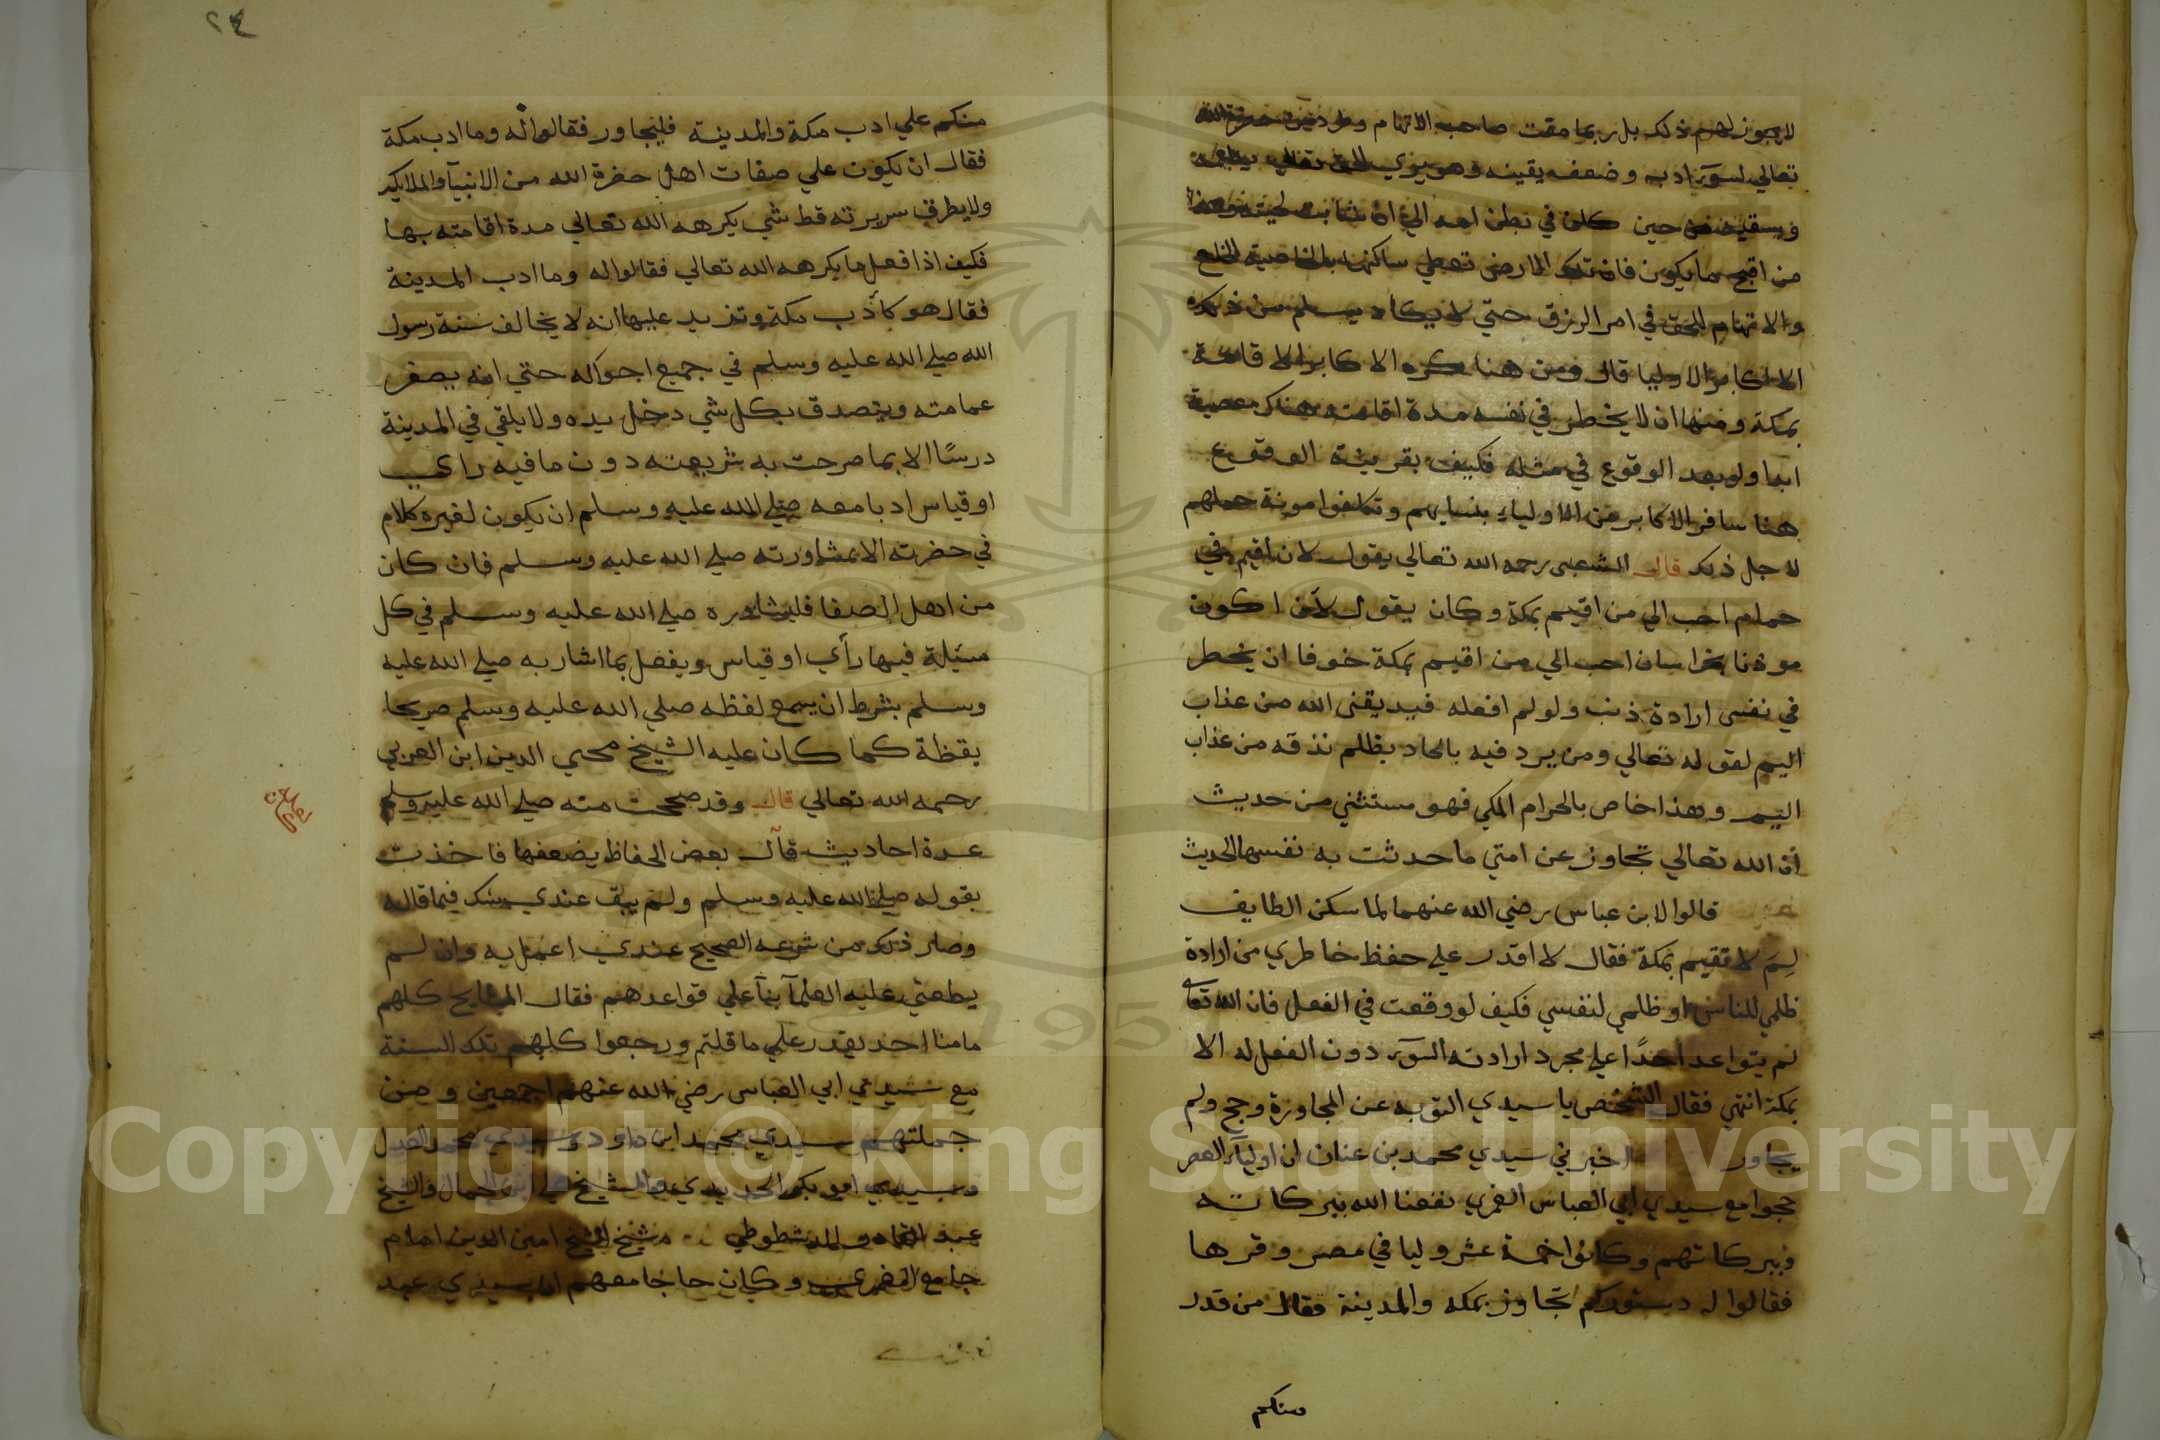 لا يجوز لهم ذلك بل ربما مقت صاحب الاتهام وطرد من حضرة الله
تعالي لسوء ادبه وضعف يقينه وهو يري الحق تعالي يطعمه
ويسقيه من حين كان في بطن امه الي ان شابت لحيته وهذا
من اقبح ما يكون فان تلك الارض تعطي ساكنها بالخاصية الهلع
والاتهام للحق في امر الرزق حتي لا يكاد يسلم من ذلك
الا اكابر الاوليا قال ومن هنا كره الاكابر الاقامة
بمكة ومنها ان لا يخطر في نفسه مدة اقامته هناك معصية
ابدا ولو بعد الوقوع في مثله فكيف بقريبة الوقوع
هنا سافر الاكابر من الاولياء بنسايهم وتكلفوا مونة حملهم
لاجل ذلك قال الشعبي رحمه الله تعالي يقول لان اقيم في
حمام احب الي من اقيم بمكة وكان يقول لان اكون
موذنا بخراسان احب الي من اقيم بمكة خوفا ان يخطر
في نفسي ارادة ذنب ولو لم افعله فيذيقني الله من عذاب
اليم لقوله تعالي ومن يرد فيه بالحاد بظلم نذقه من عذاب
اليم وهذا خاص بالحرام المكي فهو مستثني من حديث
ان الله تعالي تجاوز عن امتي ما حدثت به نفسها الحديث
قالوا لابن عباس رضي الله عنهما لما سكن الطايف
لِمَ لا تقيم بمكة فقال لا اقدر علي حفظ خاطري من ارادة
ظلمي للناس او ظلمي لنفسي فكيف لو وقعت في الفعل فان الله تعا
لم يتواعد احدًا علي مجرد ارادته السوء دون الفعل له الا
بمكة انتهي فقال الشخص يا سيدي التوبه عن المجاورة وحج ولم
يجاور اخبرني سيدي محمد بن عنان ان اولياء العصر
حجوا مع سيدي ابي العباس الغمري نفعنا الله ببركاته
وببركاتهم وكانوا خمسة عشر وليا في مصر وقراها
فقالوا له دستوركم تجاوز بمكه والمدينة فقال من قدر
منكم
٢٤
منكم علي ادب مكة والمدينة فليجاور فقالوا له وما ادب مكة
فقال ان يكون علي صفات اهل حضرة الله من الانبيا والملايكة
ولا يطرق سريرته قط شي يكرهه الله تعالي مدة اقامته بها
فكيف اذا فعل ما يكرهه الله تعالي فقالوا له وما ادب المدينة
فقال هو كأدب مكة وتزيد عليها انه لا يخالف سنة رسول
الله صلي الله عليه وسلم في جميع احواله حتي انه يصغر
عمامته ويتصدق بكل شي دخل يده ولا يلقي في المدينة
درسًا الا بما صرحت به شريعته دون ما فيه راي
او قياس ادبا معه صلي الله عليه وسلم ان يكون لغيره كلام
في حضرته الا بمشاورته صلي الله عليه وسلم فان كان
من اهل الصفا فليشاوره صلي الله عليه وسلم في كل
مسئلة فيها رأي او قياس ويفعل بما اشار به صلي الله عليه
وسلم بشرط ان يسمع لفظه صلي الله عليه وسلم صريحا
يقظة كما كان عليه الشيخ محيي الدين ابن العربي
رحمه الله تعالي قال وقد صححت منه صلي الله عليه وسلم
عدة احاديث قال بعض الحفاظ يضعفها فاخذت
بقوله صلي الله عليه وسلم ولم يبق عندي شك فيما قاله
وصار ذلك من شرعه الصحيح عندي اعمل به وان لم
يطعني عليه العلمآ بنآ علي قواعدهم فقال المشايخ كلهم
ما منا احد يقدر علي ما قلتم ورجعوا كلهم تلك السنة
مع سيدي ابي العباس رضي الله عنهم اجمعين ومن
جملتهم سيدي محمد ابن داود وسيدي محمد العدل
وسيدي ابو بكر الحديدي والشيخ علي ابن الجمال والشيخ
عبد القادر الدشطوطي وشيخ الشيخ امين الدين امام
جامع الغمري وكان حاجا معهم ان سيدي عبد
Copyright © King Saud University
1957